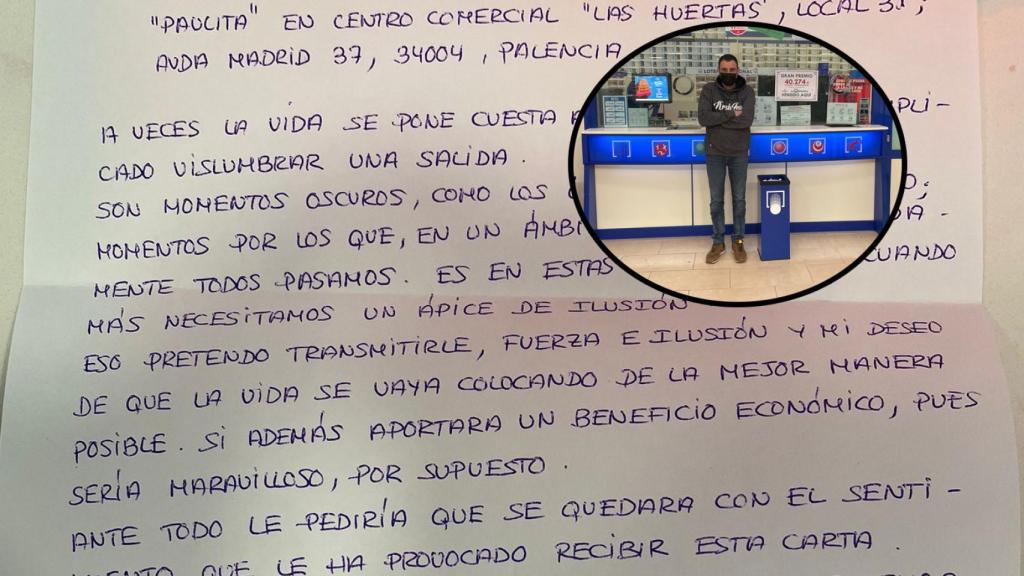 "PAULITA" EN CENTRO COMERCIAL "LAS HUERTAS", LOCAL
AVDA MADRID 37, 34004, PALENCIA
A VECES LA VIDA SE PONE CUESTA A PLI-
CADO VISLUMBRAR UNA SALIDA.
SON MOMENTOS OSCUROS, COMO LOS
MOMENTOS POR LOS QUE, EN UN ÁMBI
MENTE TODOS PASAMOS. ES EN ESTAS CUANDO
MÁS NECESITAMOS UN ÁPICE DE ILUSIÓN
ESO PRETENDO TRANSMITIRLE, FUERZA E ILUSIÓN Y MI DESEO
DE QUE LA VIDA SE VAYA COLOCANDO DE LA MEJOR MANERA
POSIBLE. SI ADEMÁS APORTARA UN BENEFICIO ECONÓMICO, PUES
SERÍA MARAVILLOSO, POR SUPUESTO.
ANTE TODO LE PEDIRÍA QUE SE QUEDARA CON EL SENTI-
MIENTO QUE LE HA PROVOCADO RECIBIR ESTA CARTA.
GRAN PREMIO
40.274€
VENDIDO AQUÍ